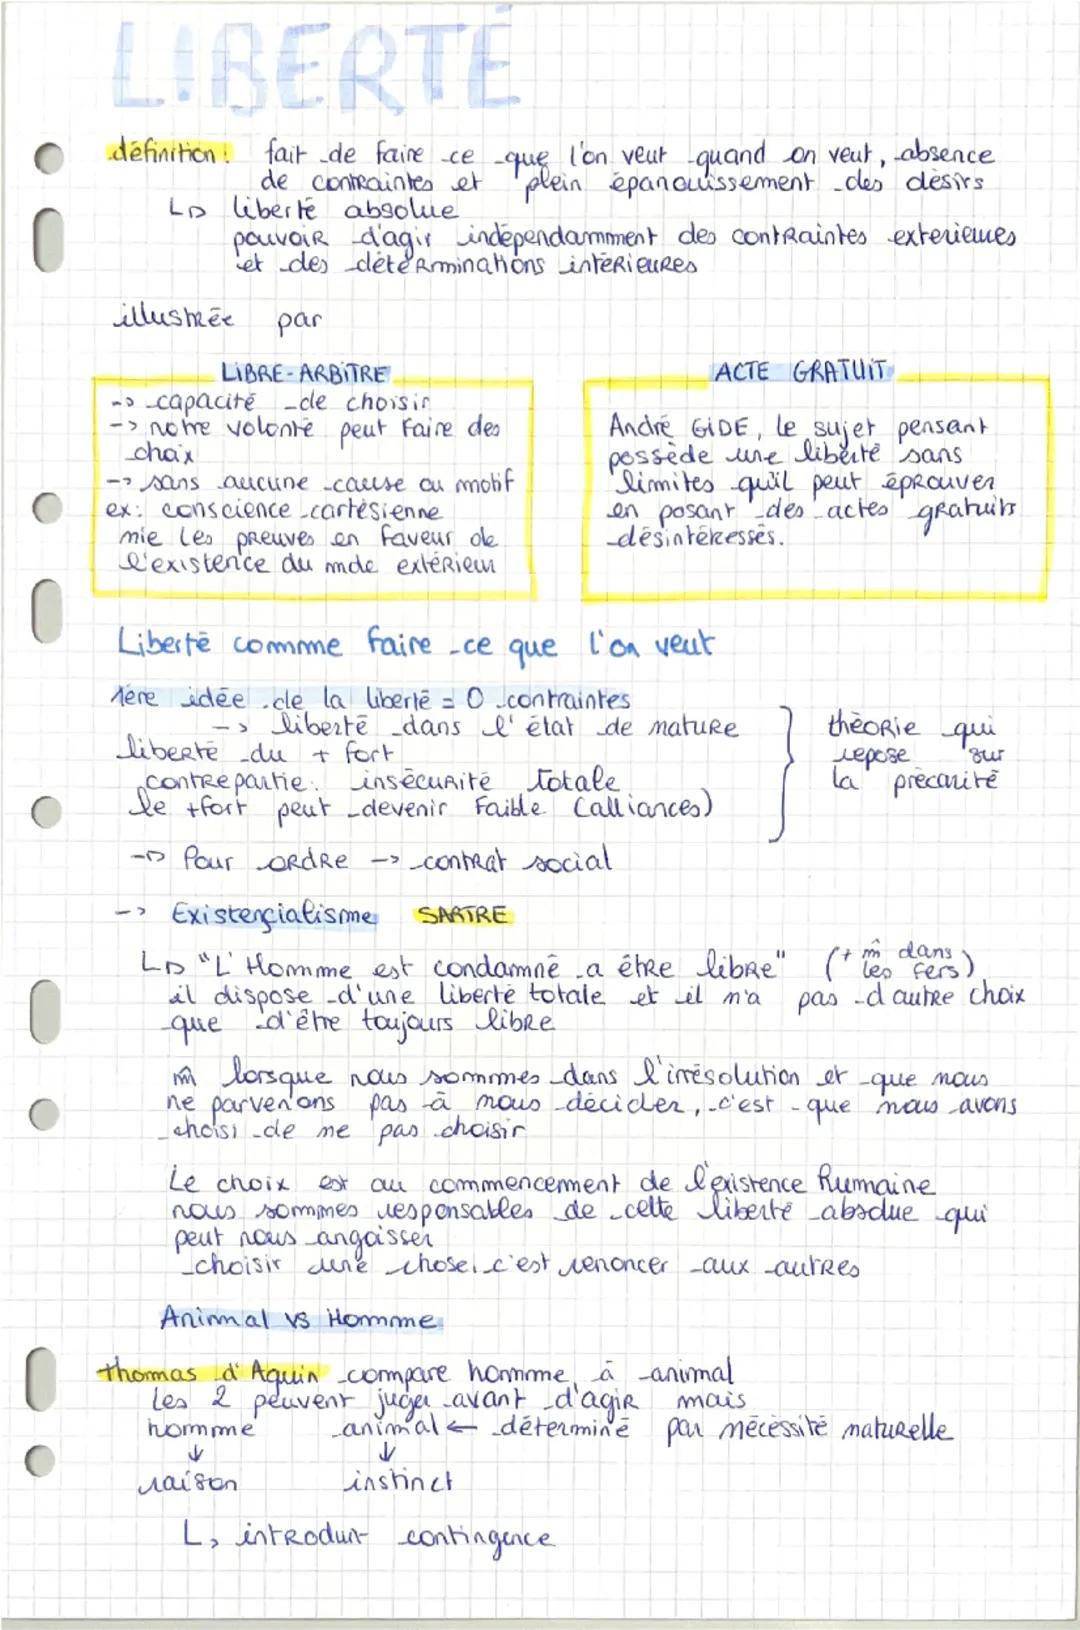 LIBERTÉ
définition: fait de faire ce que l'on veut quand on veut, absence
de contraintes et plein épanouissement des désirs
↳ liberté absolue
pouvoir d'agir indépendamment des contraintes exterieures
et des déterminations intérieures
illustrée par
LIBRE-ARBITRE
-> capacité de choisir
-> notre volonté peut faire des
choix
-> sans aucune cause ou motif
ex: conscience cartésienne
nie les preuves en faveur de
l'existence du mde extérieur
ACTE GRATUIT
André GIDE, le sujet pensant
possède une liberté sans
limites qu'il peut éprouver
en posant des actes gratuits
désintéressés.
Liberté comme faire ce que l'on veut
1ère idée de la liberté = 0 contraintes
-> liberté dans l'état de nature
liberté du + fort
contrepartie: insécurité totale
le +fort peut devenir faible (alliances)
théorie qui
repose sur
la précarité
-> Pour ordre -> contrat social
-> Existencialisme SARTRE
↳ "L'Homme est condamné a être libre" (+ m̂ dans les fers)
il dispose d'une liberté totale et il n'a pas d'autre choix
que d'être toujours libre
m̂ lorsque nous sommes dans l'irrésolution et que nous
ne parvenons pas à nous décider, c'est que nous avons
choisi de ne pas choisir
Le choix est au commencement de l'existence humaine
nous sommes responsables de cette liberté absolue qui
peut nous angoisser
choisir une chose, c'est renoncer aux autres
Animal vs Homme
thomas d'Aquin compare homme à animal
les 2 peuvent juger avant d'agir mais
homme animal ← déterminé par nécessité naturelle
↓ ↓
raison instinct
↳ introduit contingence